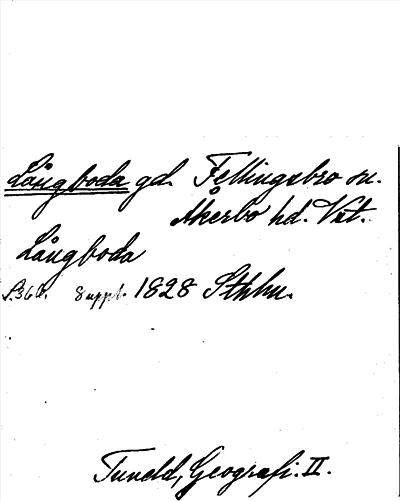 Långboda gd. Fellingsbro sn.
Åkerbo hd. Vst.
Långboda
S. 366. Suppl. 1828 Sthlm.
Tuneld, Geografi. II.